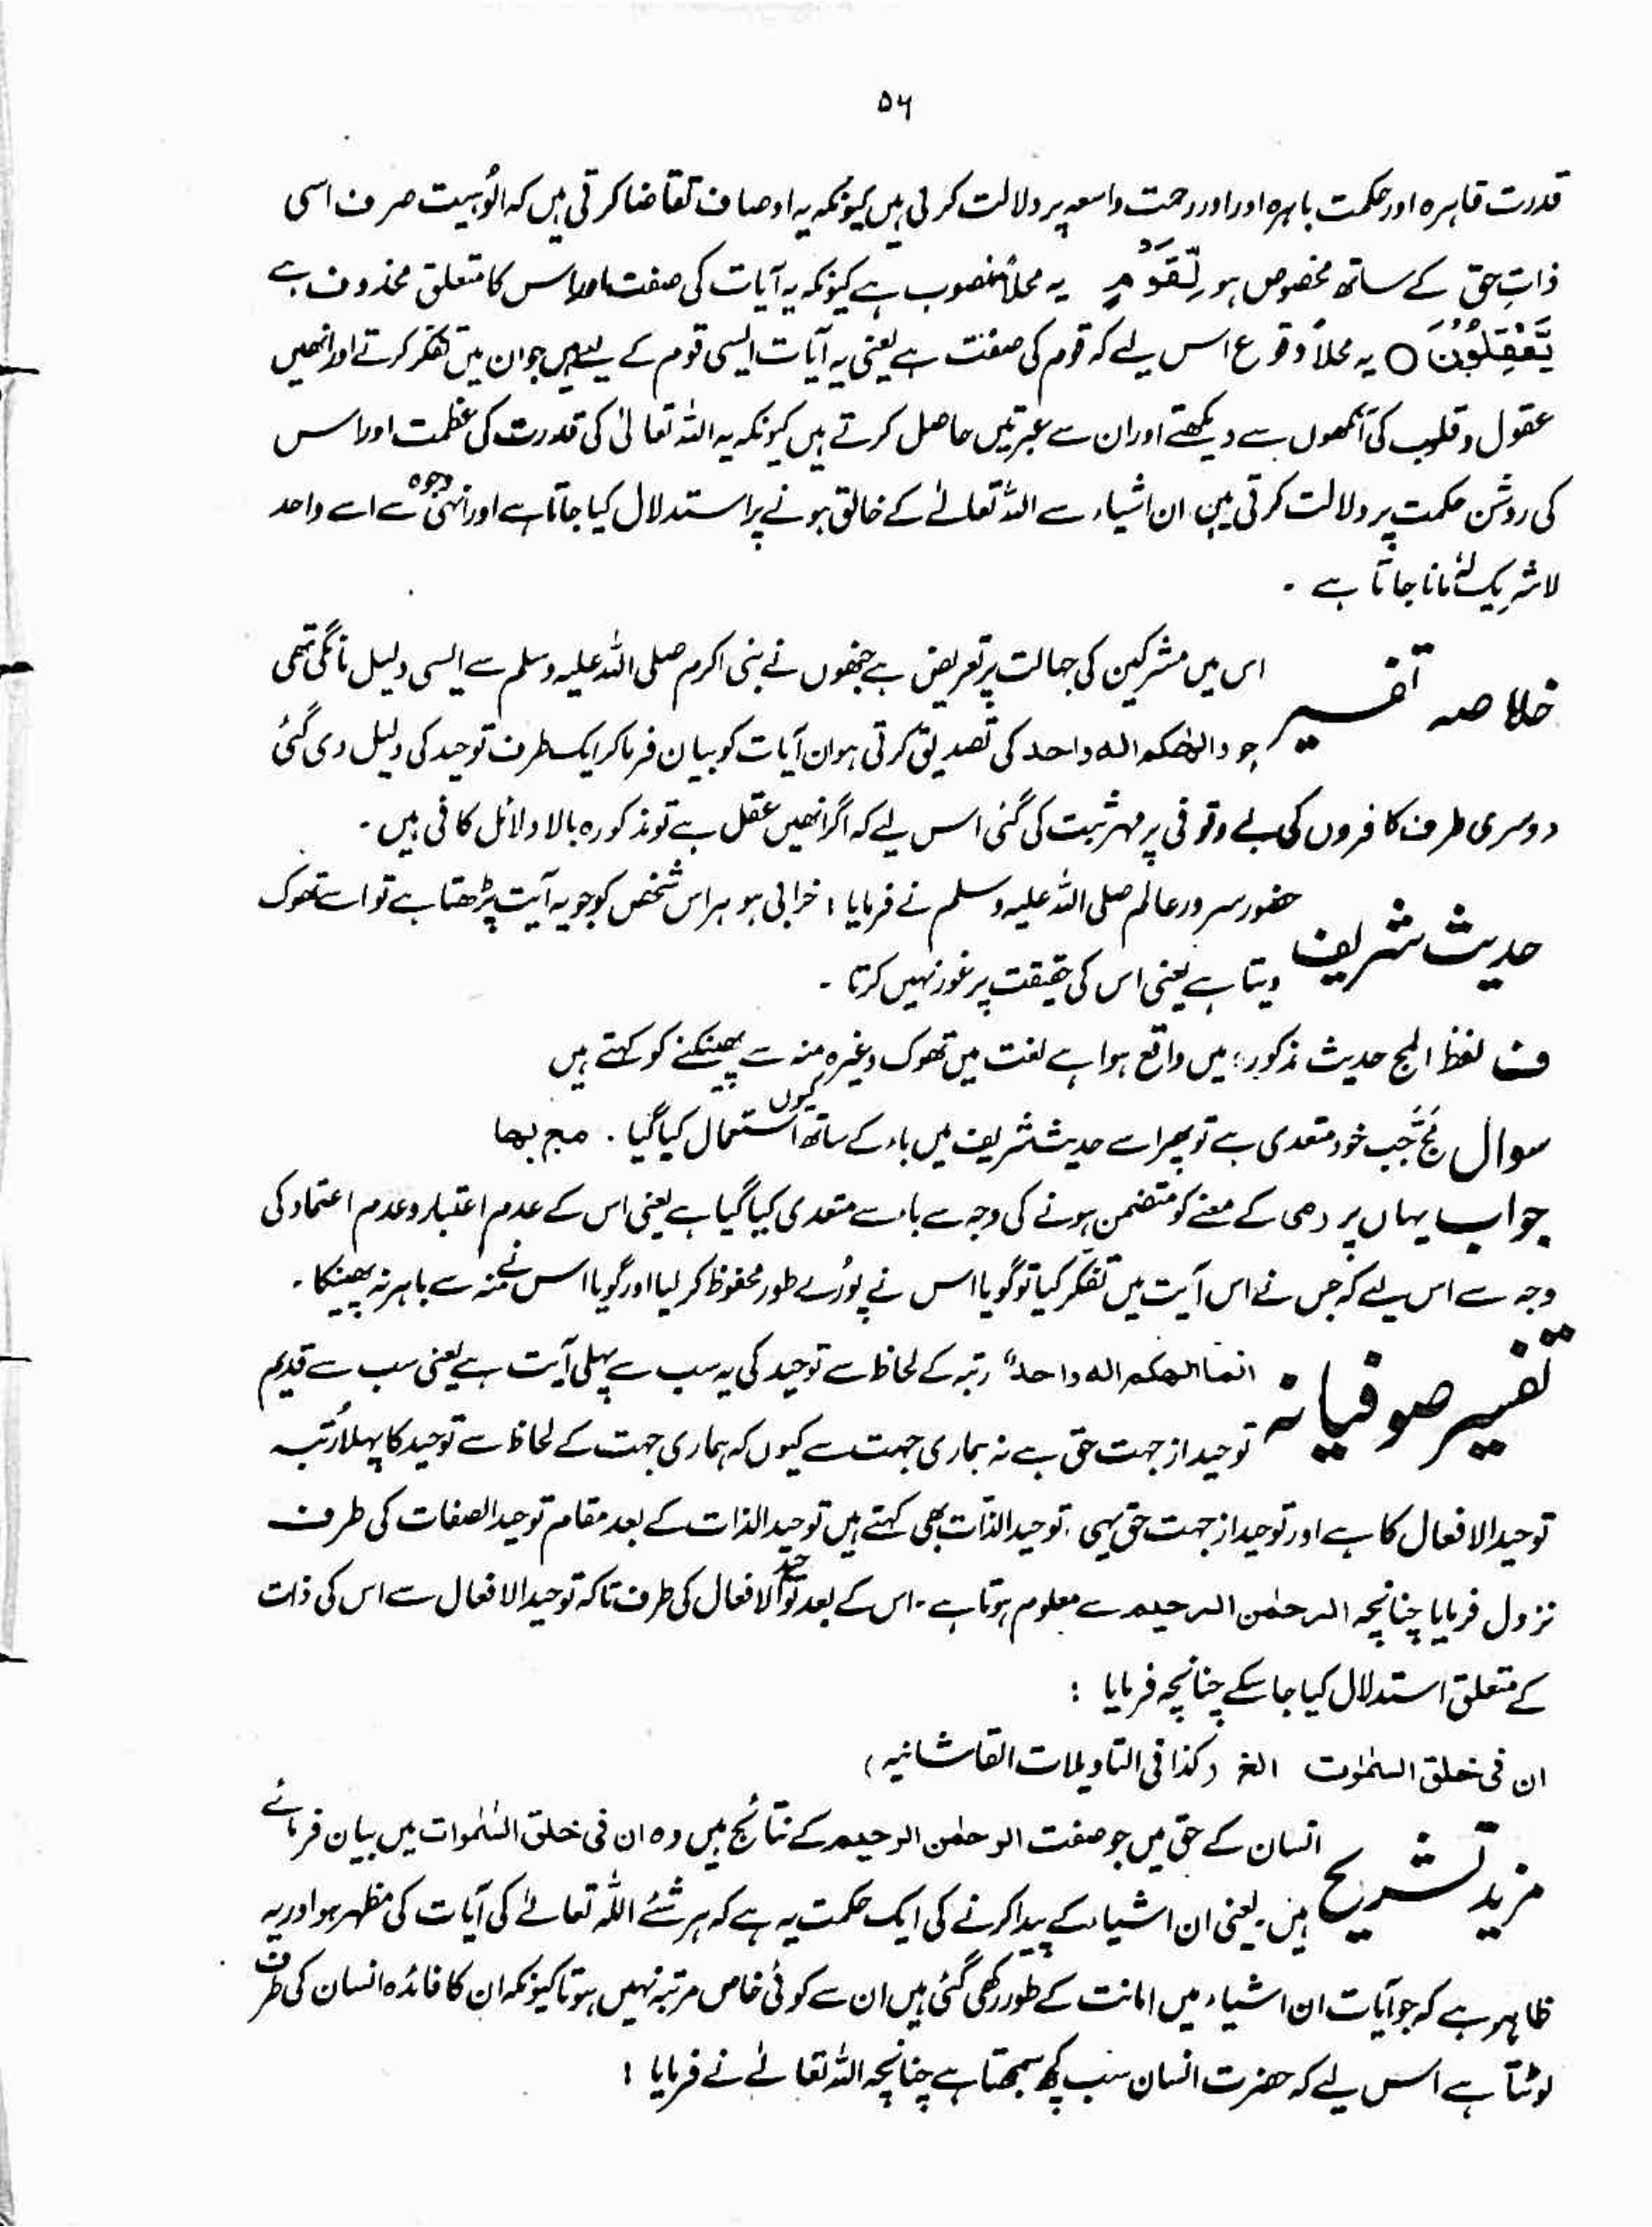 ۵۶
قدرت قاہرہ اور حکمت باہرہ اور اور رحمت واسعہ پر دلالت کرتی ہیں کیونکہ یہ اوصاف تقاضا کرتی ہیں کہ الُوہیت صرف اسی
ذاتِ حق کے ساتھ مخصوص ہو لِّقَوْمٍ یہ محلاً منصوب ہے کیونکہ یہ آیات کی صفت اور اس کا متعلق محذوف ہے
يَّعْقِلُوْنَ ○ یہ محلاً وقوع اس لیے کہ قوم کی صفت ہے یعنی یہ آیات ایسی قوم کے لیے ہیں جو ان میں تفکر کرتے اور انھیں
عقول و قلوب کی آنکھوں سے دیکھتے اور ان سے عبرتیں حاصل کرتے ہیں کیونکہ یہ اللہ تعالیٰ کی قدرت کی عظمت اور اس
کی روشن حکمت پر دلالت کرتی ہیں ان اشیاء سے اللہ تعالےٰ کے خالق ہونے پر استدلال کیا جاتا ہے اور انہی وجوہ سے اسے واحد
لاشریک لہٗ مانا جاتا ہے ۔
خلاصہ تفسیر اس میں مشرکین کی جہالت پر تعریض ہے جنھوں نے نبی اکرم صلی اللہ علیہ وسلم سے ایسی دلیل مانگی تھی
جو والٰھکم الہ واحد کی تصدیق کرتی ہو ان آیات کو بیان فرما کر ایک طرف توحید کی دلیل دی گئی
دوسری طرف کافروں کی بے وقوفی پر مہر ثبت کی گئی اس لیے کہ اگر انھیں عقل ہے تو مذکورہ بالا دلائل کافی ہیں ۔
حدیث شریف حضور سرور عالم صلی اللہ علیہ وسلم نے فرمایا : خرابی ہو ہر اس شخص کو جو یہ آیت پڑھتا ہے تو اسے تھوک
دیتا ہے یعنی اس کی حقیقت پر غور نہیں کرتا ۔
ف لفظ المج حدیث مذکورہ میں واقع ہوا ہے لغت میں تھوک وغیرہ منہ سے پھینکنے کو کہتے ہیں
سوال مَجَّ جب خود متعدی ہے تو پھر اسے حدیث شریف میں باء کے ساتھ کیوں استعمال کیا گیا ۔ مج بھا
جواب یہاں پر رمی کے معنے کو متضمن ہونے کی وجہ سے باء سے متعدی کیا گیا ہے یعنی اس کے عدم اعتبار و عدم اعتماد کی
وجہ سے اس لیے کہ جس نے اس آیت میں تفکر کیا تو گویا اس نے پُورے طور محفوظ کر لیا اور گویا اس نے منہ سے باہر نہ پھینکا ۔
تفسیر صوفیانہ انما الھکم الہ واحدٌ رتبہ کے لحاظ سے توحید کی یہ سب سے پہلی آیت ہے یعنی سب سے قدیم
توحید از جہت حق ہے نہ ہماری جہت سے کیوں کہ ہماری جہت کے لحاظ سے توحید کا پہلا رُتبہ
توحید الافعال کا ہے اور توحید از جہت حق یہی ۔ توحید الذات بھی کہتے ہیں توحید الذات کے بعد مقام توحید الصفات کی طرف
نزول فرمایا چنانچہ الرحمٰن الرحیم سے معلوم ہوتا ہے ۔ اس کے بعد توحید الافعال کی طرف تاکہ توحید الافعال سے اس کی ذات
کے متعلق استدلال کیا جا سکے چنانچہ فرمایا :
ان فی خلق السمٰوٰت الخ (کذا فی التاویلات القاشانیہ)
مزید تشریح انسان کے حق میں جو صفت الرحمٰن الرحیم کے نتائج ہیں وہ ان فی خلق السّمٰوات میں بیان فرمائے
ہیں ۔ یعنی ان اشیاء کے پیدا کرنے کی ایک حکمت یہ ہے کہ ہر شئے اللہ تعالےٰ کی آیات کی مظہر ہو اور یہ
ظاہر ہے کہ جو آیات ان اشیاء میں امانت کے طور رکھی گئی ہیں ان سے کوئی خاص مرتبہ نہیں ہوتا کیونکہ ان کا فائدہ انسان کی طرف
لوٹتا ہے اس لیے کہ حضرت انسان سب کچھ سمجھتا ہے چنانچہ اللہ تعالےٰ نے فرمایا :